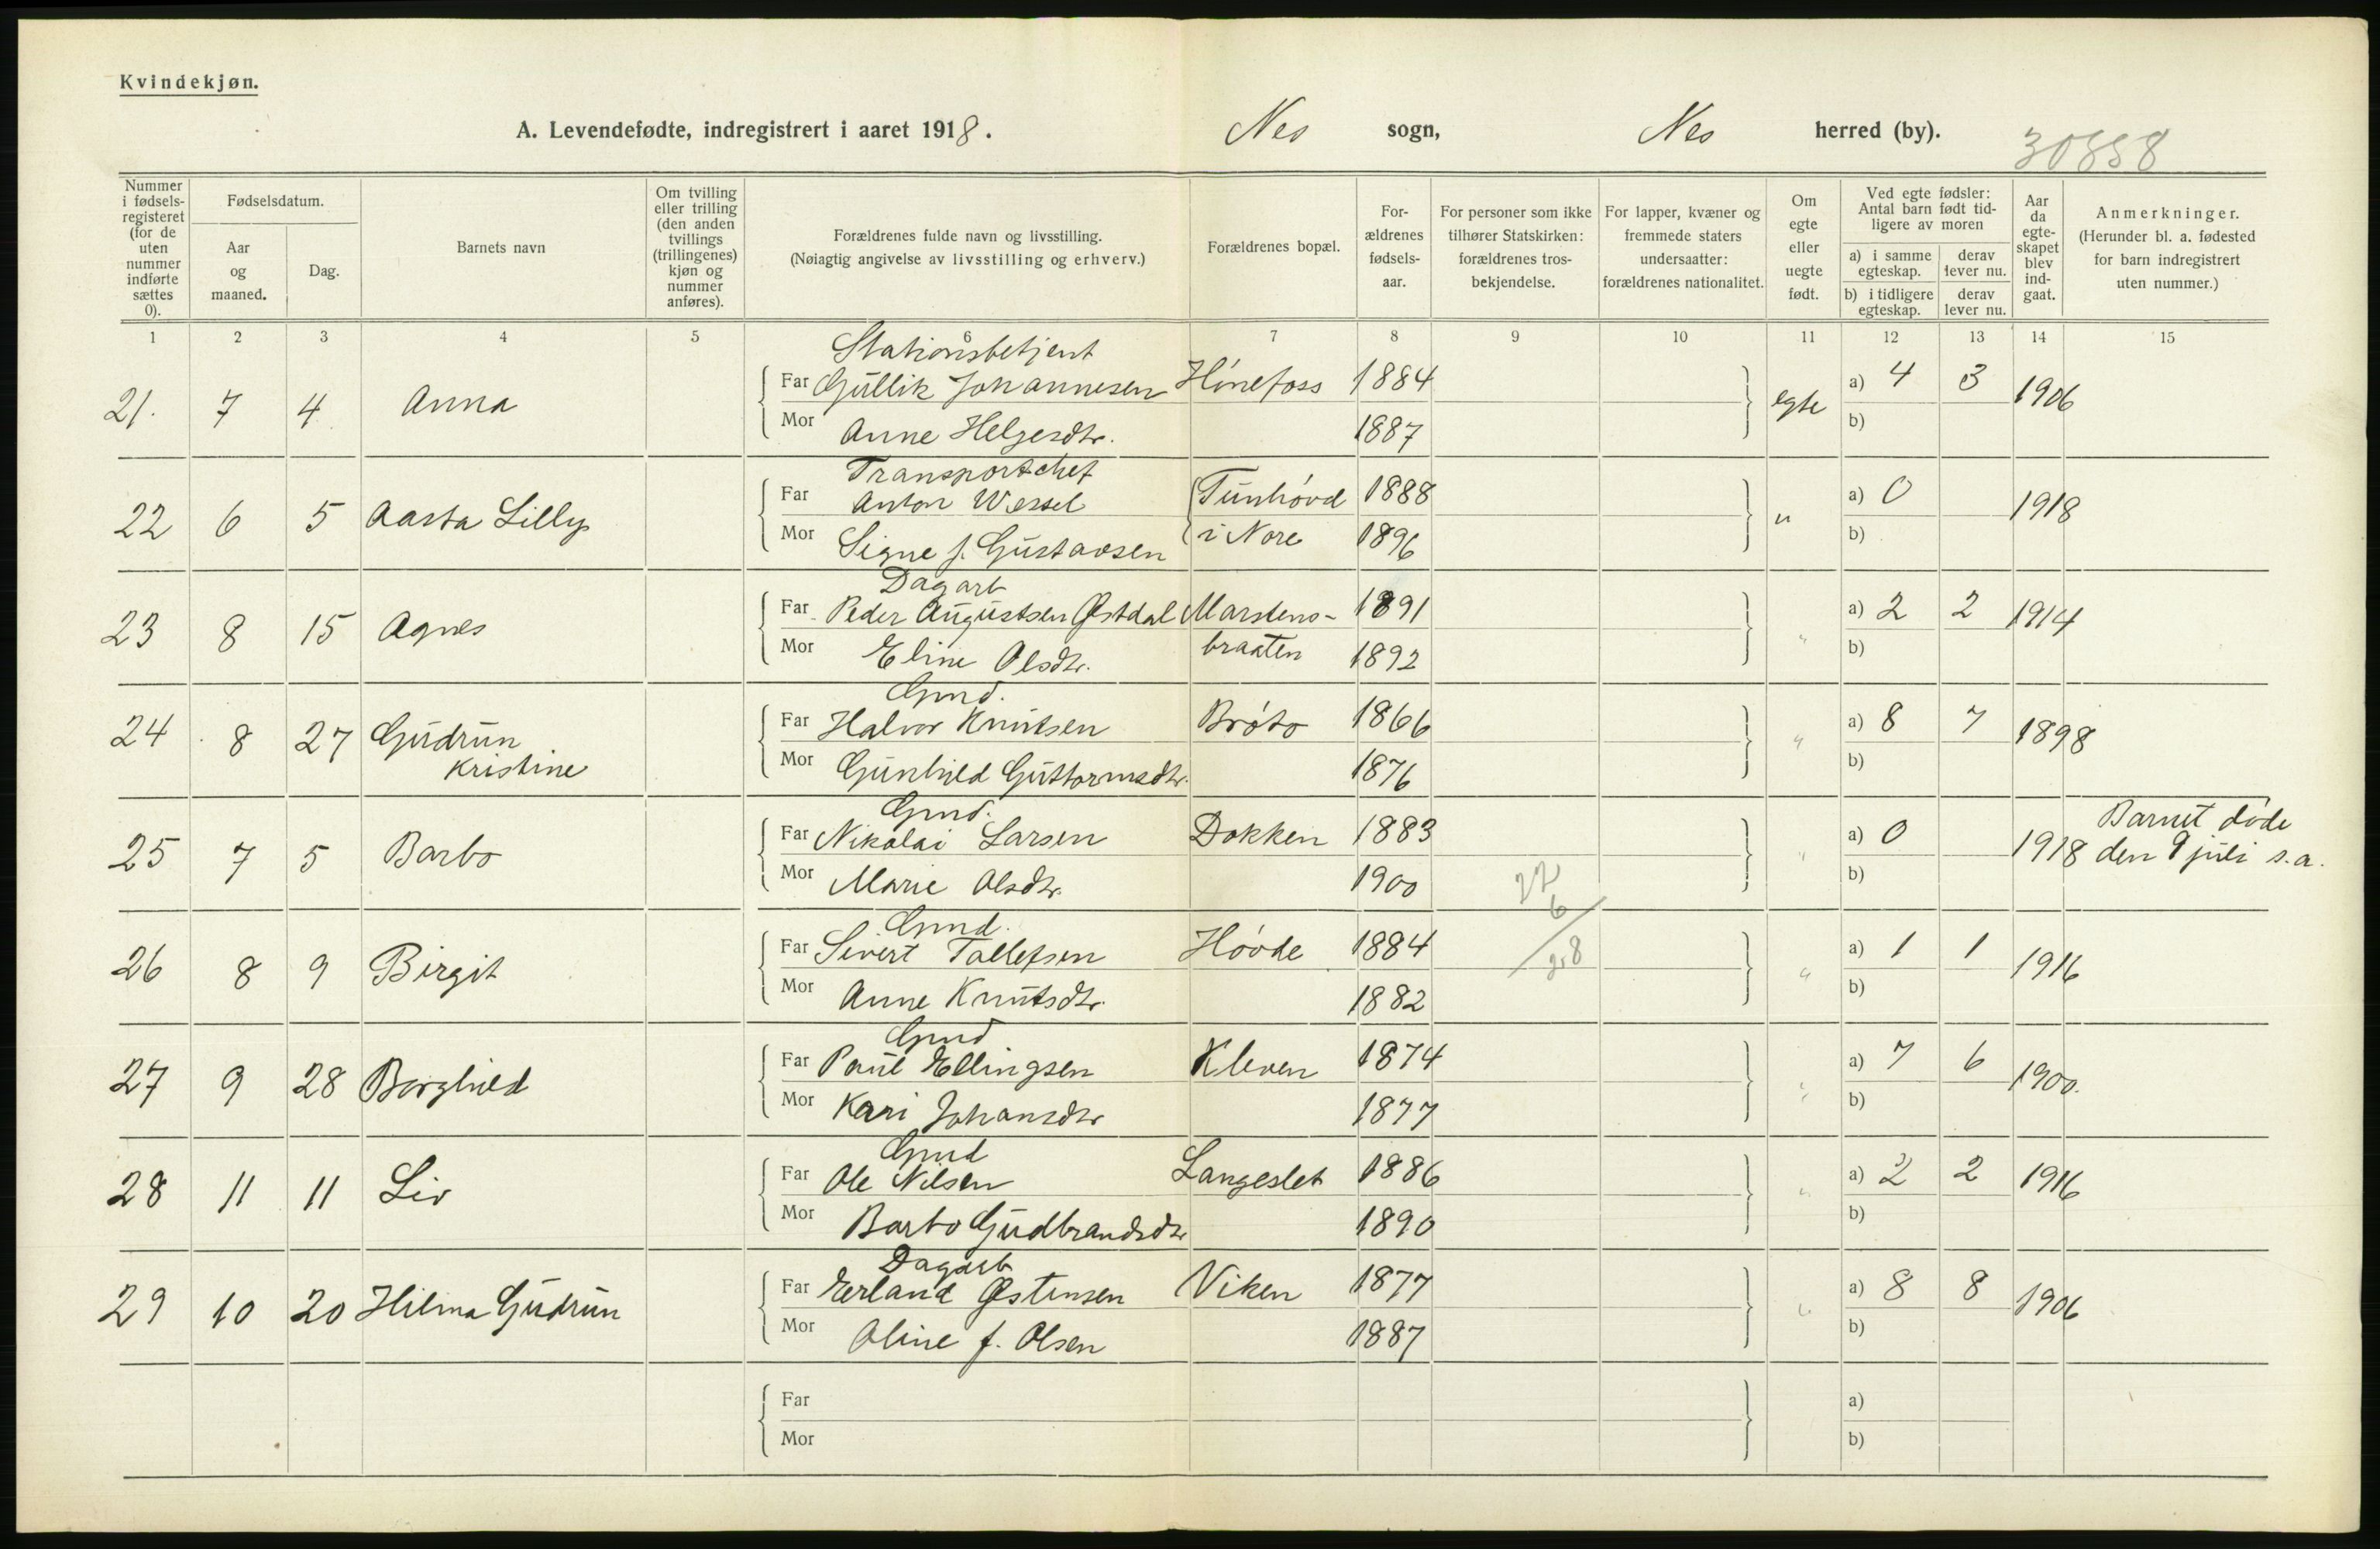 Kvindekjøn.
A. Levendefødte, indregistrert i aaret 1918. Nes sogn, Nes herred (by). 30858
Nummer i fødsels-registeret (for de uten nummer indførte sættes 0).
Fødselsdatum.
Aar og maaned.
Dag.
Barnets navn
Om tvilling eller trilling (den anden tvillings (trillingenes) kjøn og nummer anføres).
Forældrenes fulde navn og livsstilling.
(Nøiagtig angivelse av livsstilling og erhverv.)
Forældrenes bopæl.
For-ældrenes fødsels-aar.
For personer som ikke tilhører Statskirken: forældrenes tros-bekjendelse.
For lapper, kvæner og fremmede staters undersaatter: forældrenes nationalitet.
Om egte eller uegte født.
Ved egte fødsler: Antal barn født tid-ligere av moren
a) i samme egteskap. derav lever nu.
b) i tidligere egteskap. derav lever nu.
Aar da egte-skapet blev ind-gaat.
Anmerkninger.
(Herunder bl. a. fødested for barn indregistrert uten nummer.)
1 2 3 4 5 6 7 8 9 10 11 12 13 14 15
Stationsbetjent
21. 7 4 Anna Far Gullik Johannesen Hønefoss 1884 egte a) 4 3 1906
Mor Anne Helgesdtr. 1887 b)
Transportchef
22 6 5 Aasta Lilly Far Anton Wessel Tunhøvd 1888 " a) 0 1918
Mor Signe f. Gustavsen i Nore 1896 b)
Dagarb
23 8 15 Agnes Far Peder Augustsen Østdal Marstens- 1891 " a) 2 2 1914
Mor Eline Olsdtr. braaten 1892 b)
Grnd.
24 8 27 Gudrun Kristine Far Halvor Knutsen Brøto 1866 " a) 8 7 1898
Mor Gunhild Guttormsdtr. 1876 b)
Grnd.
25 7 5 Barbo Far Nikolai Larsen Dokken 1883 " a) 0 1918 Barnet døde den 9 juli s.a.
Mor Marie Olsdtr. 1900 b)
Grnd.
26 8 9 Birgit Far Sivert Tollefsen Hovde 1884 " a) 1 1 1916
Mor Anne Knutsdtr. 1882 b)
Grnd
27 9 28 Borghild Far Paul Ellingsen Kleven 1874 " a) 7 6 1900.
Mor Kari Johansdtr 1877 b)
Grnd
28 11 11 Liv Far Ole Nilsen Langeslet 1886 " a) 2 2 1916
Mor Barbo Gudbrandsdtr 1890 b)
Dagarb
29 10 20 Hilma Gudrun Far Erland Østensen Viken 1877 " a) 8 8 1906
Mor Oline f. Olsen 1887 b)
Far a)
Mor b)